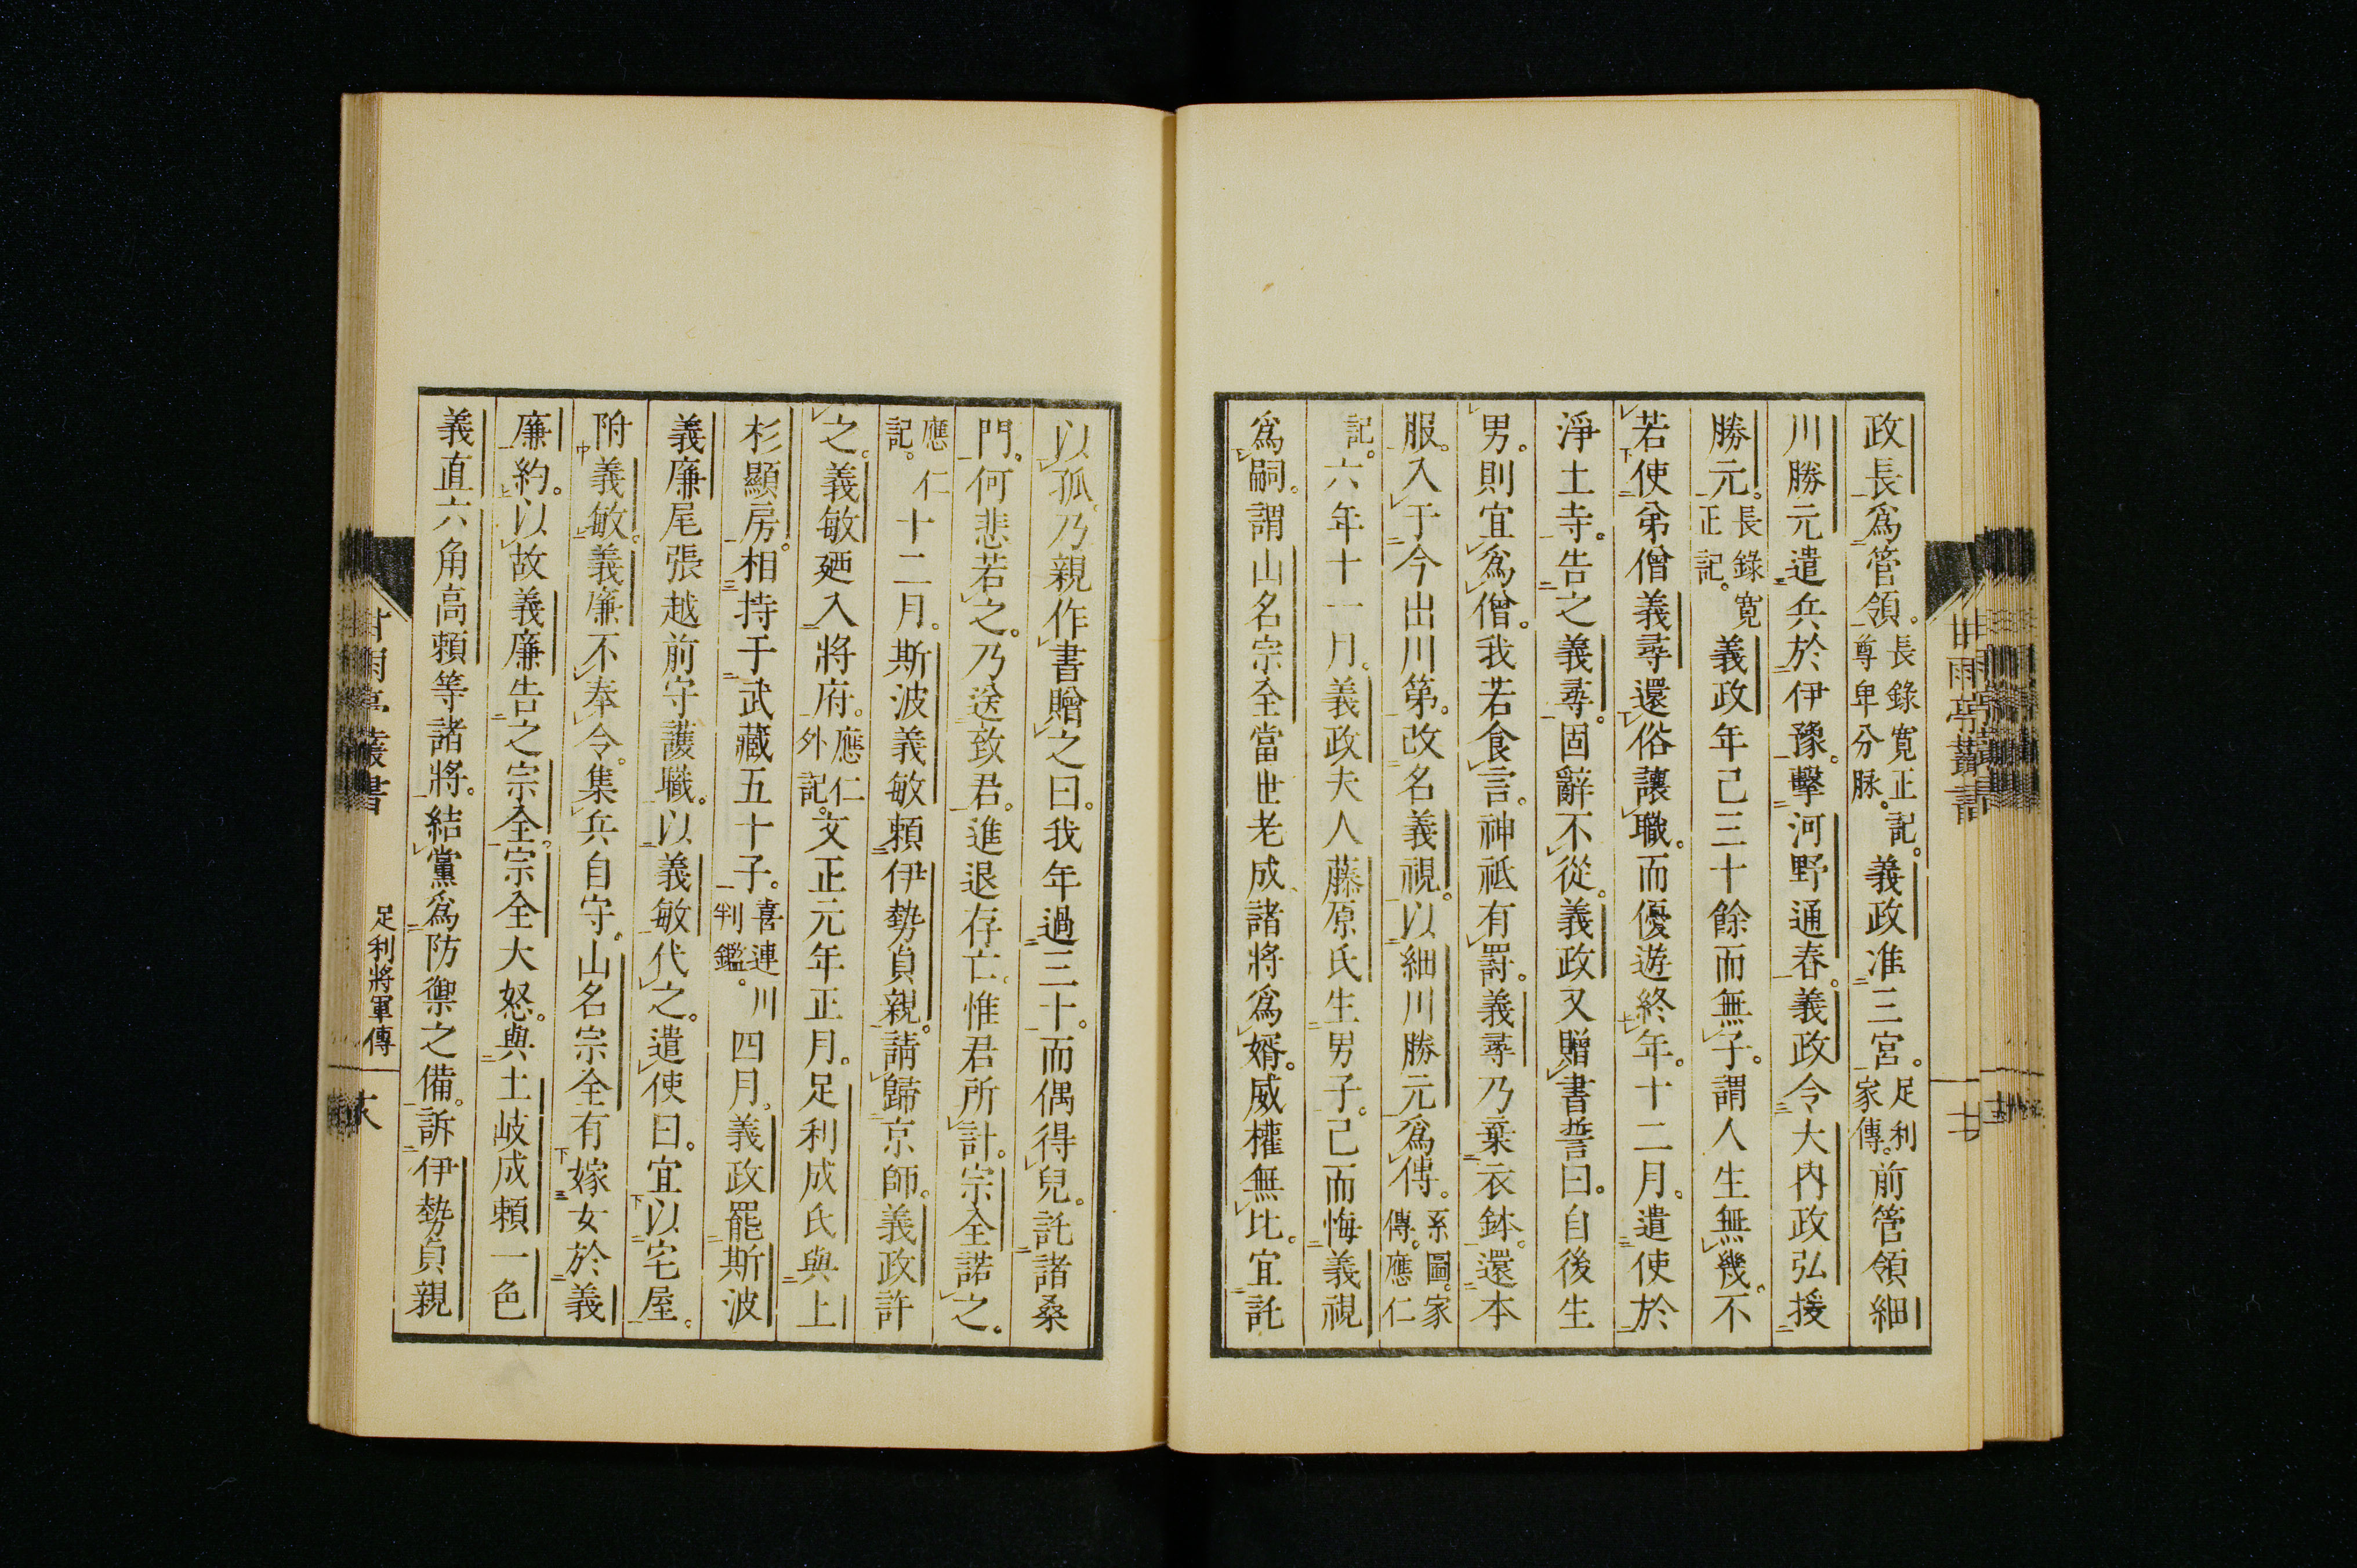 政長爲管領。長錄寬正記。尊卑分脉。義政准三宮。足利家傳。前管領細
川勝元遣兵於伊豫。擊河野通春。義政令大內政弘援
勝元。長錄寬正記。義政年已三十餘而無子。謂人生無幾。不
若使弟僧義尋還俗讓職。而優遊終年。十二月。遣使於
淨土寺。告之義尋。固辭不從。義政又贈書誓曰。自後生
男。則宜爲僧。我若食言。神祇有罰。義尋乃棄衣鉢。還本
服。入于今出川第。改名義視。以細川勝元爲傅。系圖。家傳。應仁
記。六年十一月。義政夫人藤原氏生男子。已而悔義視
爲嗣。謂山名宗全當世老成、諸將爲婿。威權無比。宜託
以孤。乃親作書贈之曰。我年過三十。而偶得兒。託諸桑
門。何悲若之。乃送致君。進退存亡、惟君所計。宗全諾之。
應仁記。十二月。斯波義敏賴伊勢貞親。請歸京師。義政許
之。義敏廼入將府。應仁外記。文正元年正月。足利成氏與上
杉顯房。相持于武藏五十子。喜連川判鑑。四月。義政罷斯波
義廉尾張越前守護職。以義敏代之。遣使曰。宜以宅屋。
附義敏。義廉不奉令。集兵自守。山名宗全有嫁女於義
廉約。以故義廉告之宗全。宗全大怒。與土岐成賴一色
義直六角高賴等諸將。結黨爲防禦之備。訴伊勢貞親
甘雨亭叢書
足利將軍傳
甘雨亭叢書